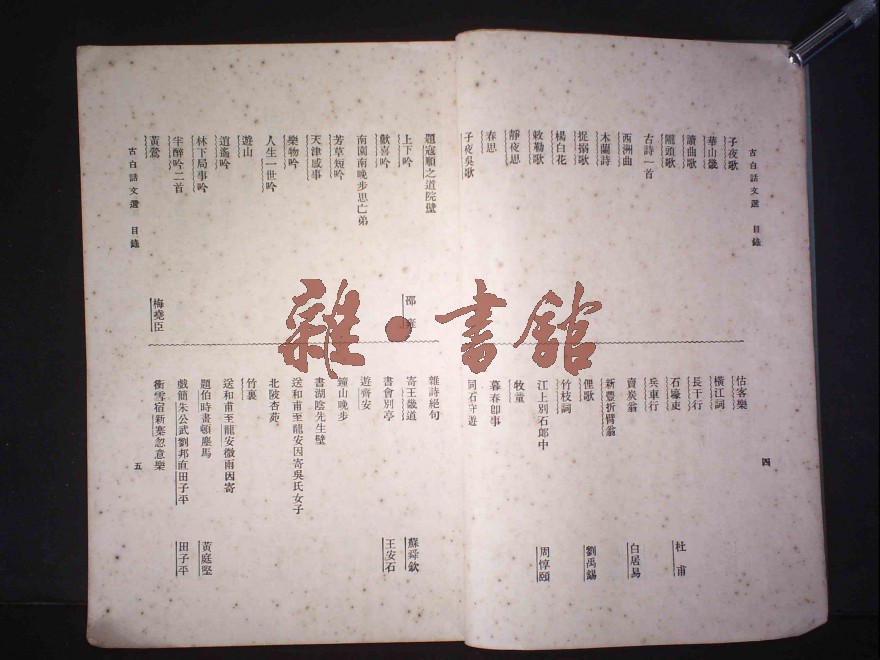 古白話文選 目錄
子夜歌
華山畿
讀曲歌
隴頭歌
古詩一首
西洲曲
木蘭詩
捉搦歌
楊白花
敕勒歌
靜夜思
春思
子夜吳歌
估客樂
橫江詞
長干行
石壕吏 杜甫
兵車行
賣炭翁 白居易
新豐折臂翁
俚歌 劉禹錫
竹枝詞
江上別石郎中 周惇頤
牧童
暮春卽事
同石守遊
四
題寇順之道院壁
上下吟 邵雍
歡喜吟
南園南晚步思亡弟
芳草短吟
天津感事
樂物吟
人生一世吟
遊山
逍遙吟
林下局事吟
半醉吟二首
黃鶯 梅堯臣
雜詩絕句
寄王畿道 蘇舜欽
書會別亭 王安石
遊齊安
鐘山晚步
書湖陰先生壁
送和甫至龍安因寄吳氏女子
北陂杏苑
竹裏
送和甫至龍安微雨因寄
題伯時畫頓塵馬 黃庭堅
戲簡朱公武劉邦直田子平 田子平
衝雪宿新寨忽意樂
古白話文選 目錄
五
雜·書館